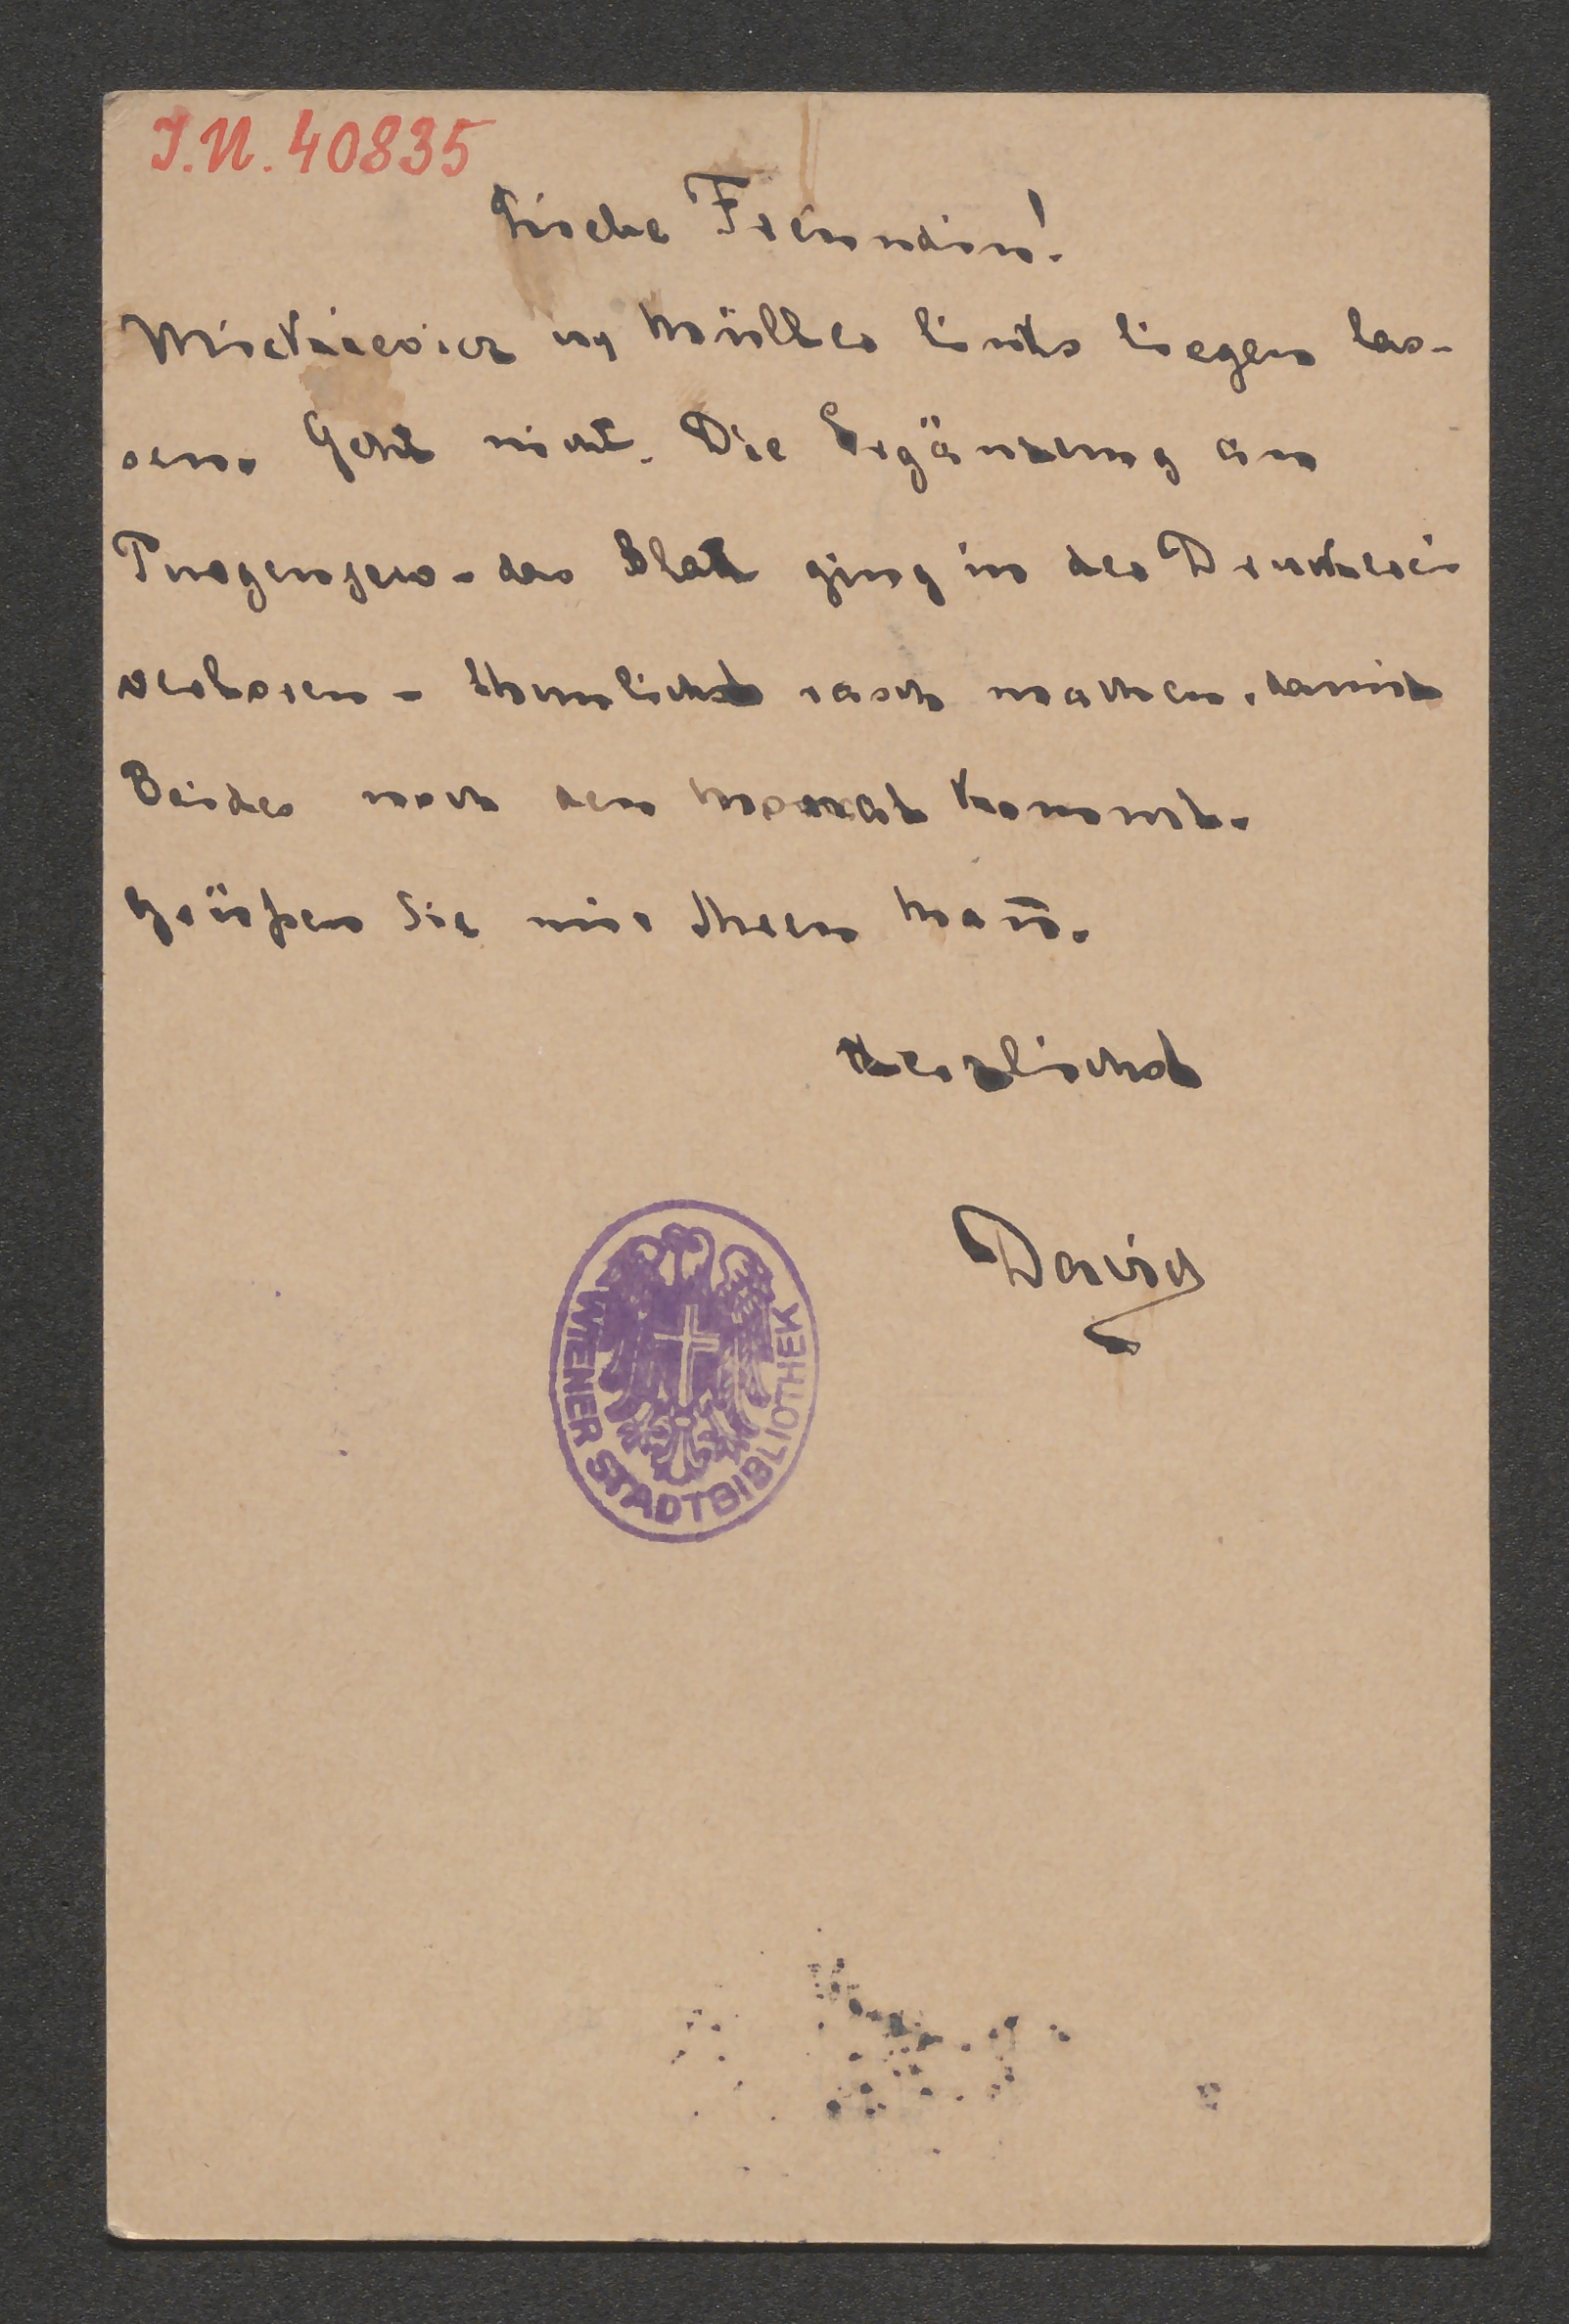 I.N. 40835
Liebe Freundin!
Mickiewicz u Müller links liegen las-
sen. Geht nicht. Die Ergänzung an
Turgenjew - das Blatt ging in der Druckerei
verloren - thunlichst rasch machen, damit
Beides noch den Monat kommt.
Grüßen Sie mir Ihren Mañ.
Herzlichst
David
WIENER STADTBIBLIOTHEK